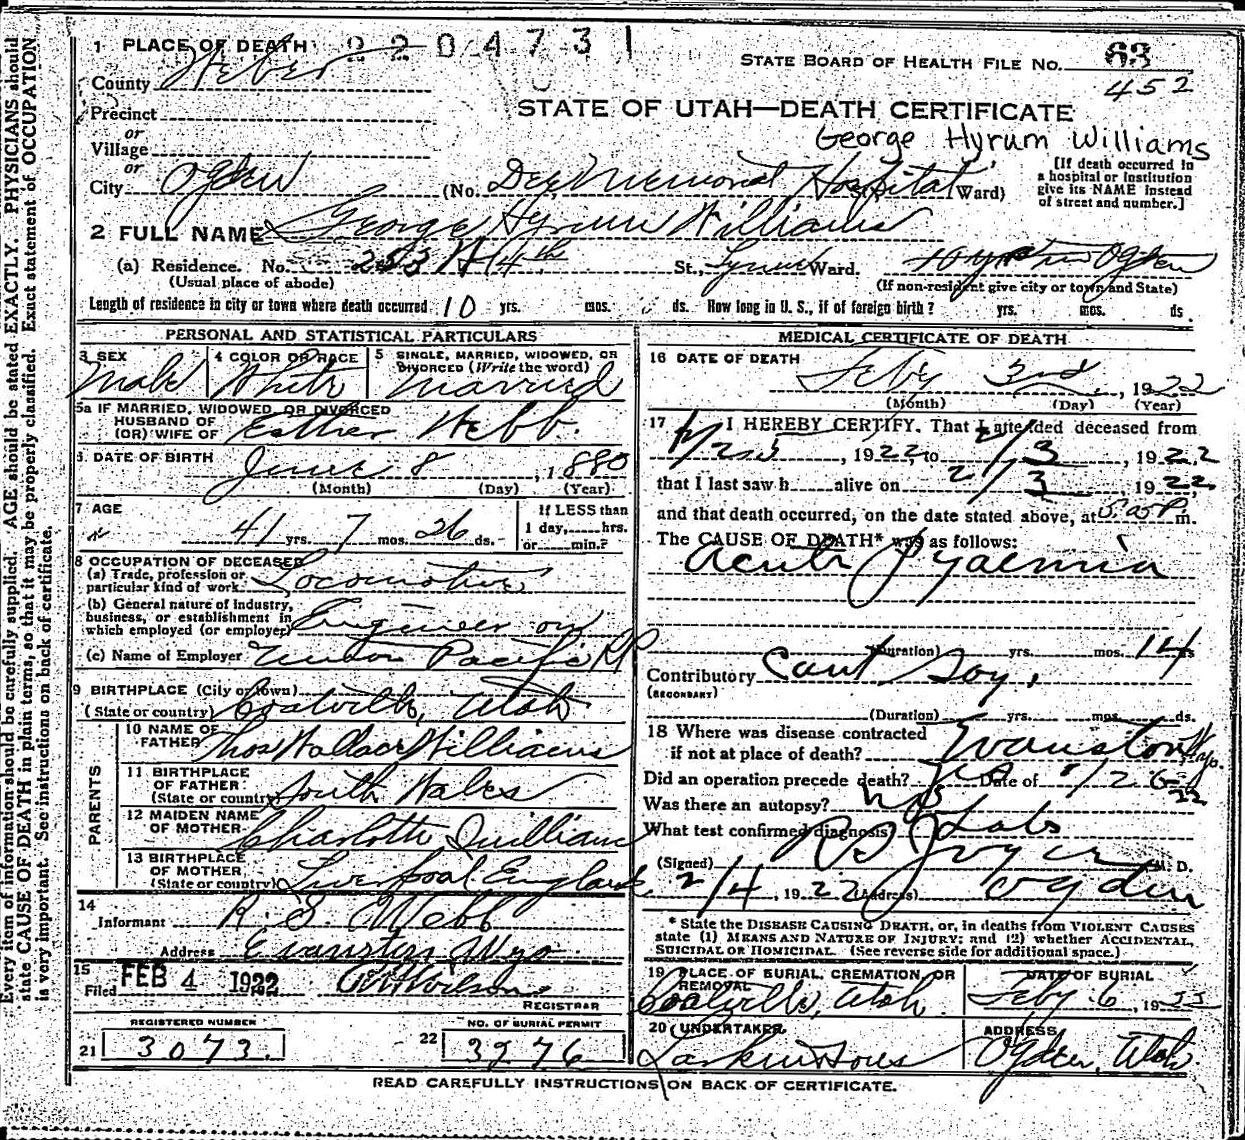 Every item of information should be carefully supplied. AGE should be stated EXACTLY. PHYSICIANS should
state CAUSE OF DEATH in plain terms, so that it may be properly classified. Exact statement of OCCUPATION
is very important. See instructions on back of certificate.
1 PLACE OF DEATH 220473
County Weber
STATE BOARD OF HEALTH FILE NO. 63
452
Precinct
STATE OF UTAH—DEATH CERTIFICATE
or
Village
George Hyrum Williams
or
City Ogden (No. Dee Memorial Hospital St., Ward)
[If death occurred in
a hospital or institution
give its NAME instead
of street and number.]
2 FULL NAME George Hyrum Williams
(a) Residence. No. 253 14th St., Lynch Ward. Ogden
(Usual place of abode) (If non-resident give city or town and State)
Length of residence in city or town where death occurred 10 yrs. mos. ds. How long in U. S., if of foreign birth? yrs. mos. ds.
PERSONAL AND STATISTICAL PARTICULARS
3 SEX 4 COLOR OR RACE 5 SINGLE, MARRIED, WIDOWED, OR
DIVORCED (Write the word)
Male White Married
5a IF MARRIED, WIDOWED, OR DIVORCED
HUSBAND OF
(OR) WIFE OF Esther Webb.
6. DATE OF BIRTH June 8, 1880
(Month) (Day) (Year)
7 AGE 41 yrs. 7 mos. 26 ds.
If LESS than
1 day, hrs.
or min.?
8 OCCUPATION OF DECEASED
(a) Trade, profession or
particular kind of work Locomotive
(b) General nature of industry,
business, or establishment in
which employed (or employer) Engineer on
(c) Name of Employer Union Pacific RR
9 BIRTHPLACE (City or town)
(State or country) Coalville, Utah
PARENTS
10 NAME OF
FATHER Thos Wallace Williams
11 BIRTHPLACE
OF FATHER
(State or country) South Wales
12 MAIDEN NAME
OF MOTHER Charlotte
13 BIRTHPLACE
OF MOTHER
(State or country) Liverpool England
14
Informant R. S. Webb
Address Evanston Wyo
15
Filed FEB 4 1922 Wilson
REGISTRAR
REGISTERED NUMBER NO. OF BURIAL PERMIT
21 3073. 22 3276
MEDICAL CERTIFICATE OF DEATH
16 DATE OF DEATH
Feby 3rd, 1922
(Month) (Day) (Year)
17 I HEREBY CERTIFY. That I attended deceased from
1/25, 1922, to 2/3, 1922
that I last saw h alive on 2/3, 1922,
and that death occurred, on the date stated above, at m.
The CAUSE OF DEATH* was as follows:
Acute Pyaemia
(Duration) yrs. mos. 14 ds
Contributory
(SECONDARY)
(Duration) yrs. mos. ds.
18 Where was disease contracted
if not at place of death? Evanston, Wyo.
Did an operation precede death? Yes Date of 1/26 22
Was there an autopsy? no
What test confirmed diagnosis? Labs
(Signed) M. D.
2/4, 1922 (Address) Ogden
* State the DISEASE CAUSING DEATH, or, in deaths from VIOLENT CAUSES
state (1) MEANS AND NATURE OF INJURY; and (2) whether ACCIDENTAL,
SUICIDAL OR HOMICIDAL. (See reverse side for additional space.)
19 PLACE OF BURIAL, CREMATION, OR
REMOVAL
Coalville, Utah.
DATE OF BURIAL
Feby 6, 1922
20 UNDERTAKER
Larkin Sons
ADDRESS
Ogden, Utah
READ CAREFULLY INSTRUCTIONS ON BACK OF CERTIFICATE.